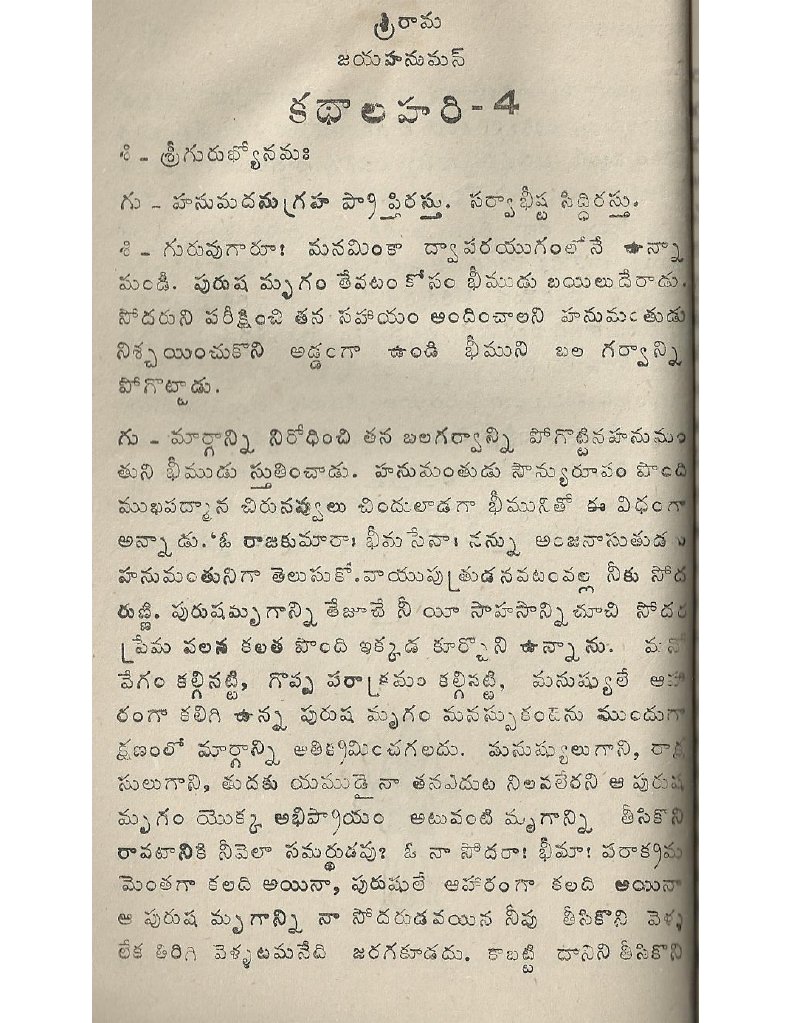 శ్రీరామ
జయహనుమన్
కథాలహరి-4
శి - శ్రీగురుభ్యోనమః
గు - హనుమదనుగ్రహ ప్రాప్తిరస్తు. సర్వాభీష్ట సిద్ధిరస్తు.
శి - గురువుగారూ! మనమింకా ద్వాపరయుగంలోనే ఉన్నా
మండి. పురుష మృగం తేవటంకోసం భీముడు బయిలుదేరాడు.
సోదరుని పరీక్షించి తన సహాయం అందించాలని హనుమంతుడు
నిశ్చయించుకొని అడ్డంగా ఉండి భీముని బల గర్వాన్ని
పోగొట్టాడు.
గు - మార్గాన్ని నిరోధించి తన బలగర్వాన్ని పోగొట్టినహనుమం
తుని భీముడు స్తుతించాడు. హనుమంతుడు సౌన్యురూపం పొంది
ముఖపద్మాన చిరునవ్వులు చిందులాడగా భీమునితో ఈ విధంగా
అన్నాడు.'ఓ రాజకుమారా! భీమసేనా! నన్ను అంజనాసుతుడు
హనుమంతునిగా తెలుసుకో.వాయుపుత్రుడనవటంవల్ల నీకు సోద
రుణ్ణి. పురుషమృగాన్ని తేజూచే నీ యీ సాహసాన్నిచూచి సోదర
ప్రేమ వలన కలత పొంది ఇక్కడ కూర్చొని ఉన్నాను. మనో
వేగం కల్గినట్టి, గొప్ప పరాక్రమం కల్గినట్టి, మనుష్యులే ఆహా
రంగా కలిగి ఉన్న పురుష మృగం మనస్సుకంటెను ముందుగా
క్షణంలో మార్గాన్ని అతిక్రమించగలదు. మనుష్యులుగాని, రాక్ష
సులుగాని, తుదకు యముడైనా తనఎదుట నిలవలేరని ఆ పురుష
మృగం యొక్క అభిప్రాయం అటువంటి మృగాన్ని తీసికొని
రావటానికి నీవెలా సమర్థుడవు? ఓ నా సోదరా! భీమా! పరాక్రమ
మెంతగా కలది అయినా, పురుషులే ఆహారంగా కలది అయినా
ఆ పురుష మృగాన్ని నా సోదరుడవయిన నీవు తీసికొని వెళ్ళ
లేక తిరిగి వెళ్ళటమనేది జరగకూడదు. కాబట్టి దానిని తీసికొని